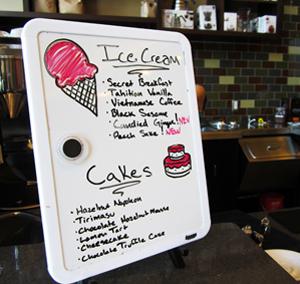 Ice Cream
• Secret Breakfast
• Tahitian Vanilla
• Vietnamese Coffee
• Black Sesame
• Candied Ginger! NEW
• Peach Sake! NEW
Cakes
• Hazelnut Napoleon
• Tirimasu
• Chocolate Hazelnut Mousse
• Lemon Tart
• Cheesecake
• Chocolate Truffle Cake